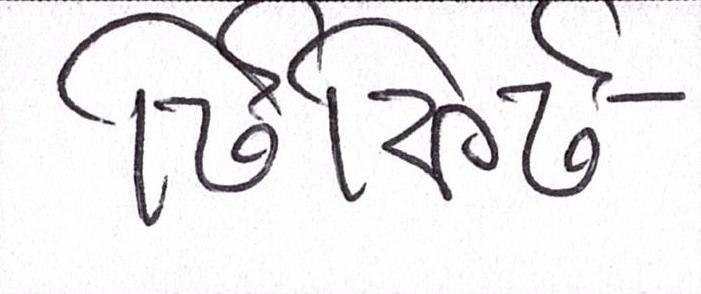 টিকিট